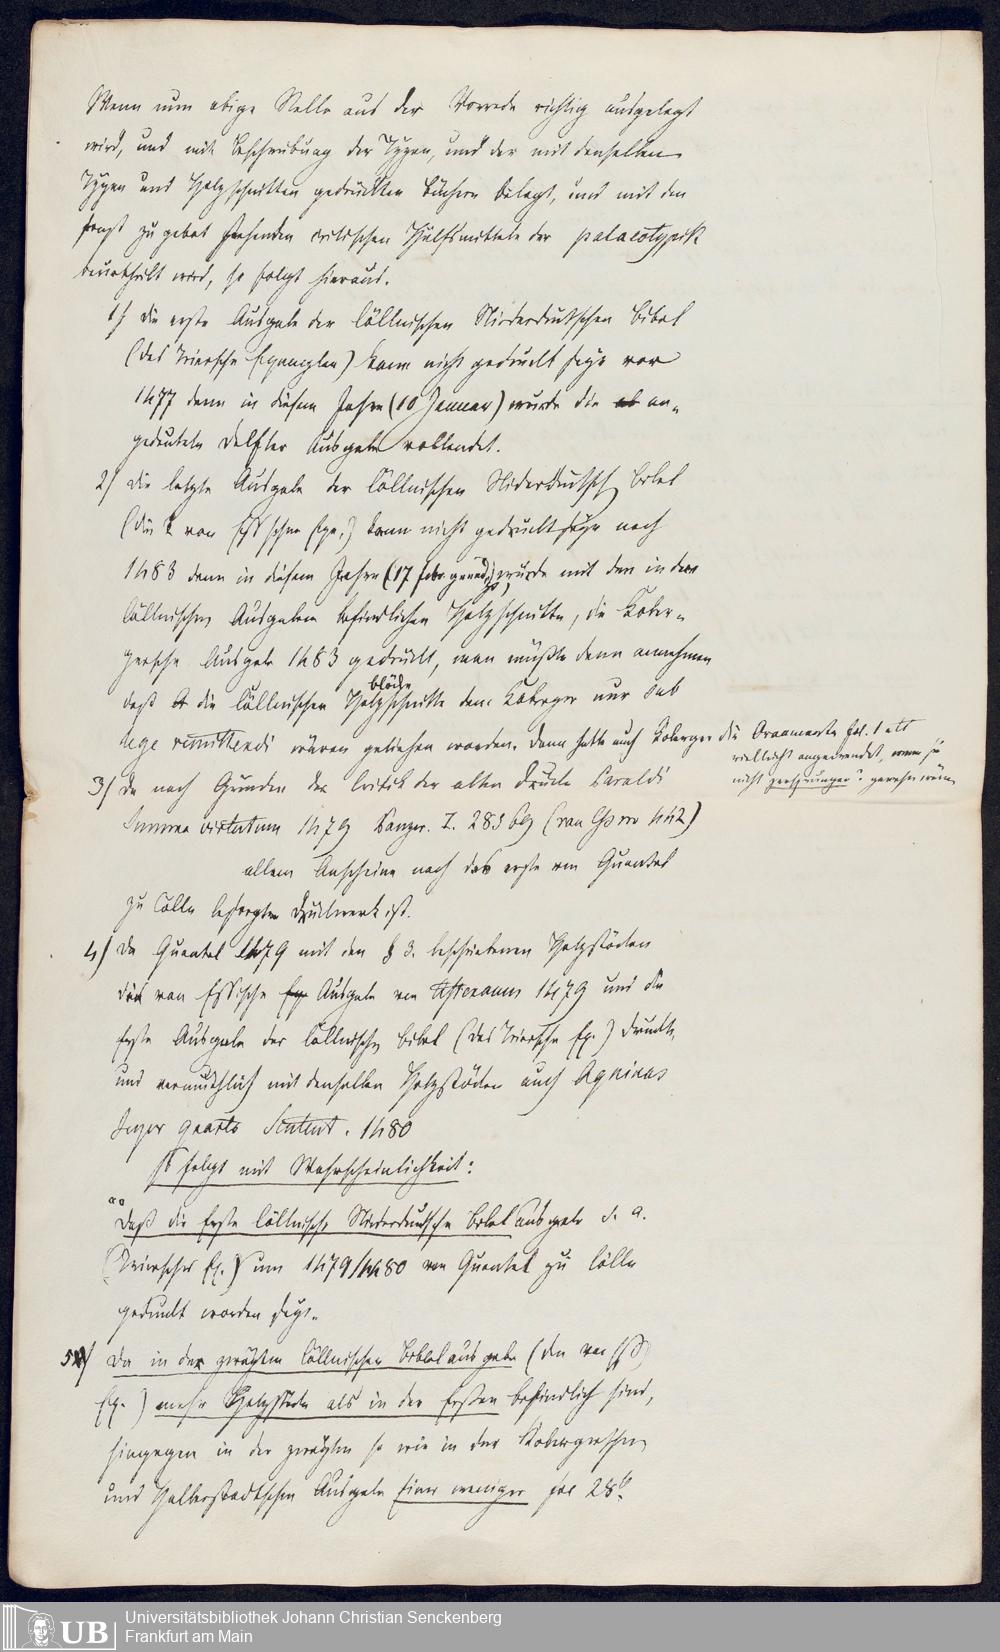 Wenn nun obige Stelle aus der Vorrede richtig ausgelegt
wird, und mit Beschreibung der Typen, und der mit denselben
Typen und Holzschnitten gedruckten Büchern belegt, und mit den
sonst zu gebot stehenden critischen Hülfsmitteln der palaeotypik
beurtheilt wird, so folgt hieraus.
1) die erste Ausgabe der Cöllnischen Niederdeutschen Bibel
(des Triersche Exemplar) kann nicht gedruckt seyn vor
1477 denn in diesem Jahre (10 Januar) wurde die an-
gedeutete Delfter Ausgabe vollendet.
2) die letzte Ausgabe der Cöllnischen Niederdeutsch Bibel
(die von Eß'schen Exe.) kann nicht gedruckt seyn nach
1483 denn in diesem Jahre (17 febr. geendigt) wurde mit den in der
Cöllnischen Ausgaben befindlichen Holzschnitte, die Kober-
gersche Ausgabe 1483 gedruckt, man müßte denn annehmen
daß die Cöllnischen Holzschnitte dem Koberger nur sub
blöcke
lege remittendi wären geliehen worden. dann hätte auch Koberger die Ornamente fol. 1 ett
vielleicht angewendet, wenn sie
nicht zersprungen gewesen wären
3) da nach Gründen der Critick der alten Drucke Peraldi
Summa virtutum 1479 Panzer. I. 283 69 (van Eß no 442)
allem Anscheine nach das erste von Quentel
zu Cölln besorgte Druckwerk ist.
4) da Quentel 1479 mit den § 3. beschriebenen Holzstöcken
die van Essische Ausgabe von Astexanus 1479 und die
Erste Ausgabe der Cöllnische Bibel (des Triersche Ex.) druckte,
und vermuthlich mit denselben Holzstöcken auch Aquinas
Super quarto Sentent. 1480
so folgt mit Wahrscheinlichkeit:
Daß die Erste Cöllnische Niederdeutsche Bibel Ausgabe s. a.
(Trierscher Ex.) um 1479/1480 von Quentel zu Cölln
gedruckt worden seye.
5) Da in der zweyten Cöllnischen Bibelausgabe (den van Eß
Ex.) mehr Holzstöcke als in der Ersten befindlich sind,
hingegen in der zweyten so wie in der Kobergerschen
und Halberstadtschen Ausgabe Einer weniger fol 28b.
Universitätsbibliothek Johann Christian Senckenberg
Frankfurt am Main
UB